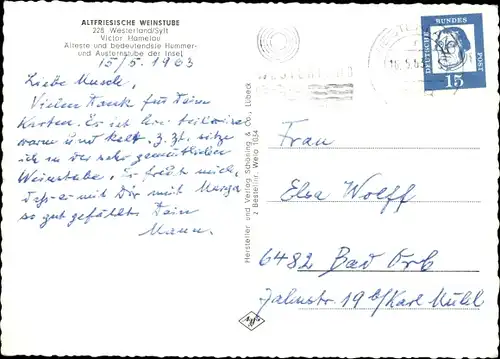 ALTFRIESISCHE WEINSTUBE
228 Westerland/Sylt
Victor Hamelau
Älteste und bedeutendste Hummer-
und Austernstube der Insel
15/5. 1963
Liebe Musch,
Vielen Dank für Deine
Karten. Es ist hier teilweise
warm und kalt. Z. Zt. sitze
ich in der sehr gemütlichen
Weinstube. Es freut mich,
daß es mit Dir mit Marga
so gut gefällt. Dein
Mann.
Hersteller und Verlag Schöning & Co., Lübeck
Bestellnr. Wela 1034
DEUTSCHE BUNDESPOST
15
Frau
Elsa Wolff
6482 Bad Orb
Jahnstr. 19 b/Karl Mühl